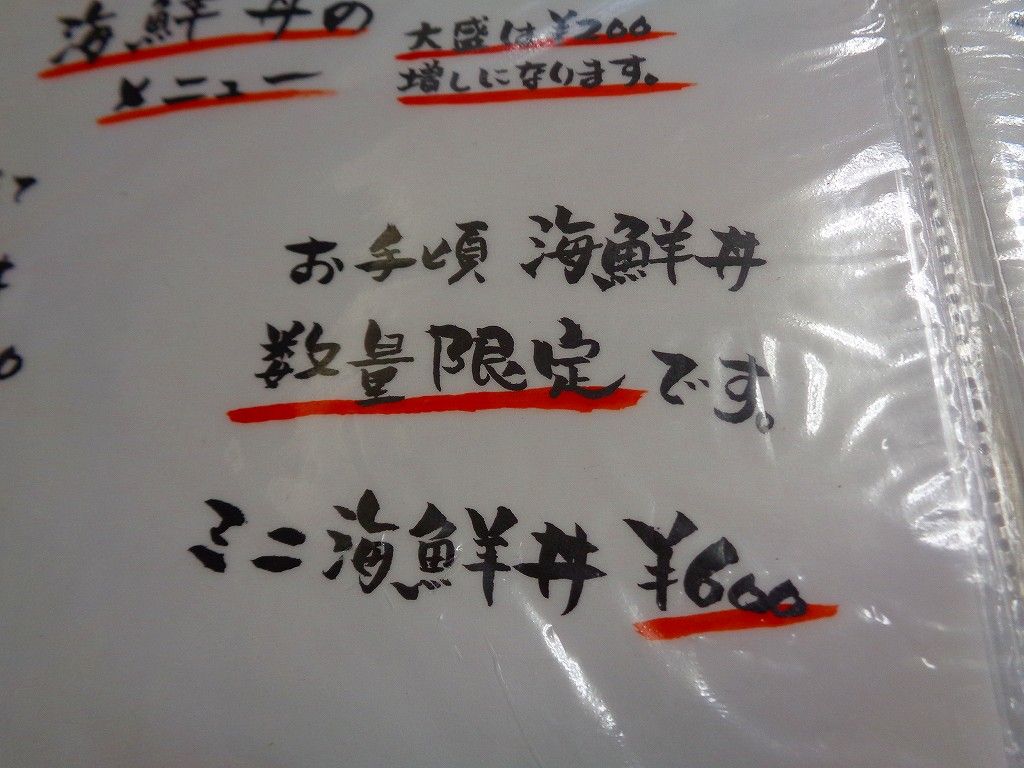 海鮮丼の
メニュー
大盛は¥200
増しになります。
お手頃 海鮮丼
数量限定です。
ミニ海鮮丼 ¥600